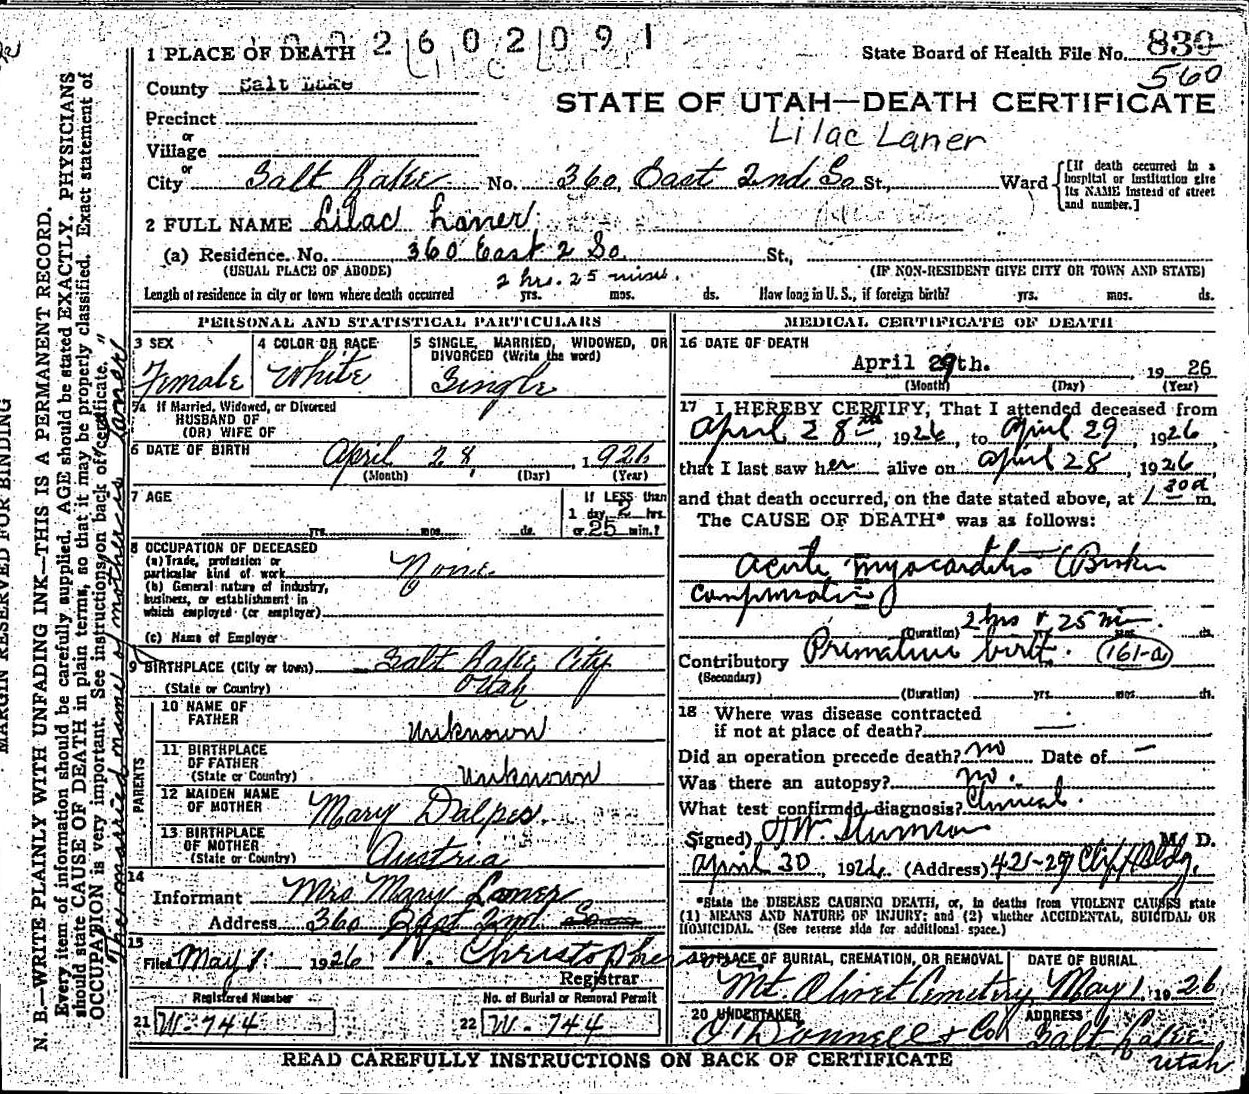 2602091
1 PLACE OF DEATH
State Board of Health File No. 830
560
County Salt Lake
STATE OF UTAH—DEATH CERTIFICATE
Precinct
Lilac Laner
or
Village
or
City Salt Lake No. 360 East 2nd So St., Ward
[If death occurred in a hospital or institution give its NAME instead of street and number.]
2 FULL NAME Lilac Laner
(a) Residence. No. 360 East 2 So. St.,
(USUAL PLACE OF ABODE) (IF NON-RESIDENT GIVE CITY OR TOWN AND STATE)
2 hrs. 25 mins.
Length of residence in city or town where death occurred yrs. mos. ds. How long in U. S., if foreign birth? yrs. mos. ds.
PERSONAL AND STATISTICAL PARTICULARS
3 SEX
Female
4 COLOR OR RACE
White
5 SINGLE, MARRIED, WIDOWED, OR
DIVORCED (Write the word)
Single
5a If Married, Widowed, or Divorced
HUSBAND OF
(OR) WIFE OF
6 DATE OF BIRTH April 28, 1926
(Month) (Day) (Year)
7 AGE
yrs. mos. ds.
If LESS than
1 day 2 hrs.
or 25 min.?
8 OCCUPATION OF DECEASED
(a) Trade, profession or
particular kind of work None
(b) General nature of industry,
business, or establishment in
which employed (or employer)
(c) Name of Employer
9 BIRTHPLACE (City or town) Salt Lake City
(State or Country) Utah
PARENTS
10 NAME OF
FATHER Unknown
11 BIRTHPLACE
OF FATHER
(State or Country) Unknown
12 MAIDEN NAME
OF MOTHER Mary Dalpes.
13 BIRTHPLACE
OF MOTHER
(State or Country) Austria
14
Informant Mrs Mary Laner
Address 360 East 2nd So
15
Filed May 1 1926 W. Christopherson
Registrar
Registered Number
21 W-744
No. of Burial or Removal Permit
22 W-744
MEDICAL CERTIFICATE OF DEATH
16 DATE OF DEATH
April 29th. 1926
(Month) (Day) (Year)
17 I HEREBY CERTIFY, That I attended deceased from
April 28th, 1926, to April 29, 1926
that I last saw her alive on April 28, 1926
and that death occurred, on the date stated above, at 1 30a m.
The CAUSE OF DEATH* was as follows:
Acute myocarditis (Broken
compensation)
(Duration) 2 hrs + 25 min. mos. ds.
Contributory Premature birth. (161-a)
(Secondary)
(Duration) yrs. mos. ds.
18 Where was disease contracted
if not at place of death? —
Did an operation precede death? no Date of —
Was there an autopsy? no.
What test confirmed diagnosis? Clinical.
(Signed) M. D.
April 30, 1926. (Address) 421-29 Clift Bldg.
*State the DISEASE CAUSING DEATH, or, in deaths from VIOLENT CAUSES state
(1) MEANS AND NATURE OF INJURY; and (2) whether ACCIDENTAL, SUICIDAL OR
HOMICIDAL. (See reverse side for additional space.)
19 PLACE OF BURIAL, CREMATION, OR REMOVAL
Mt. Olivet Cemetery
DATE OF BURIAL
May 1 1926
20 UNDERTAKER
O'Donnell & Co
ADDRESS
Salt Lake
Utah
READ CAREFULLY INSTRUCTIONS ON BACK OF CERTIFICATE
MARGIN RESERVED FOR BINDING
N. B.—WRITE PLAINLY WITH UNFADING INK—THIS IS A PERMANENT RECORD.
Every item of information should be carefully supplied. AGE should be stated EXACTLY. PHYSICIANS
should state CAUSE OF DEATH in plain terms, so that it may be properly classified. Exact statement of
OCCUPATION is very important. See instructions on back of certificate."
The married name of mother is Laner